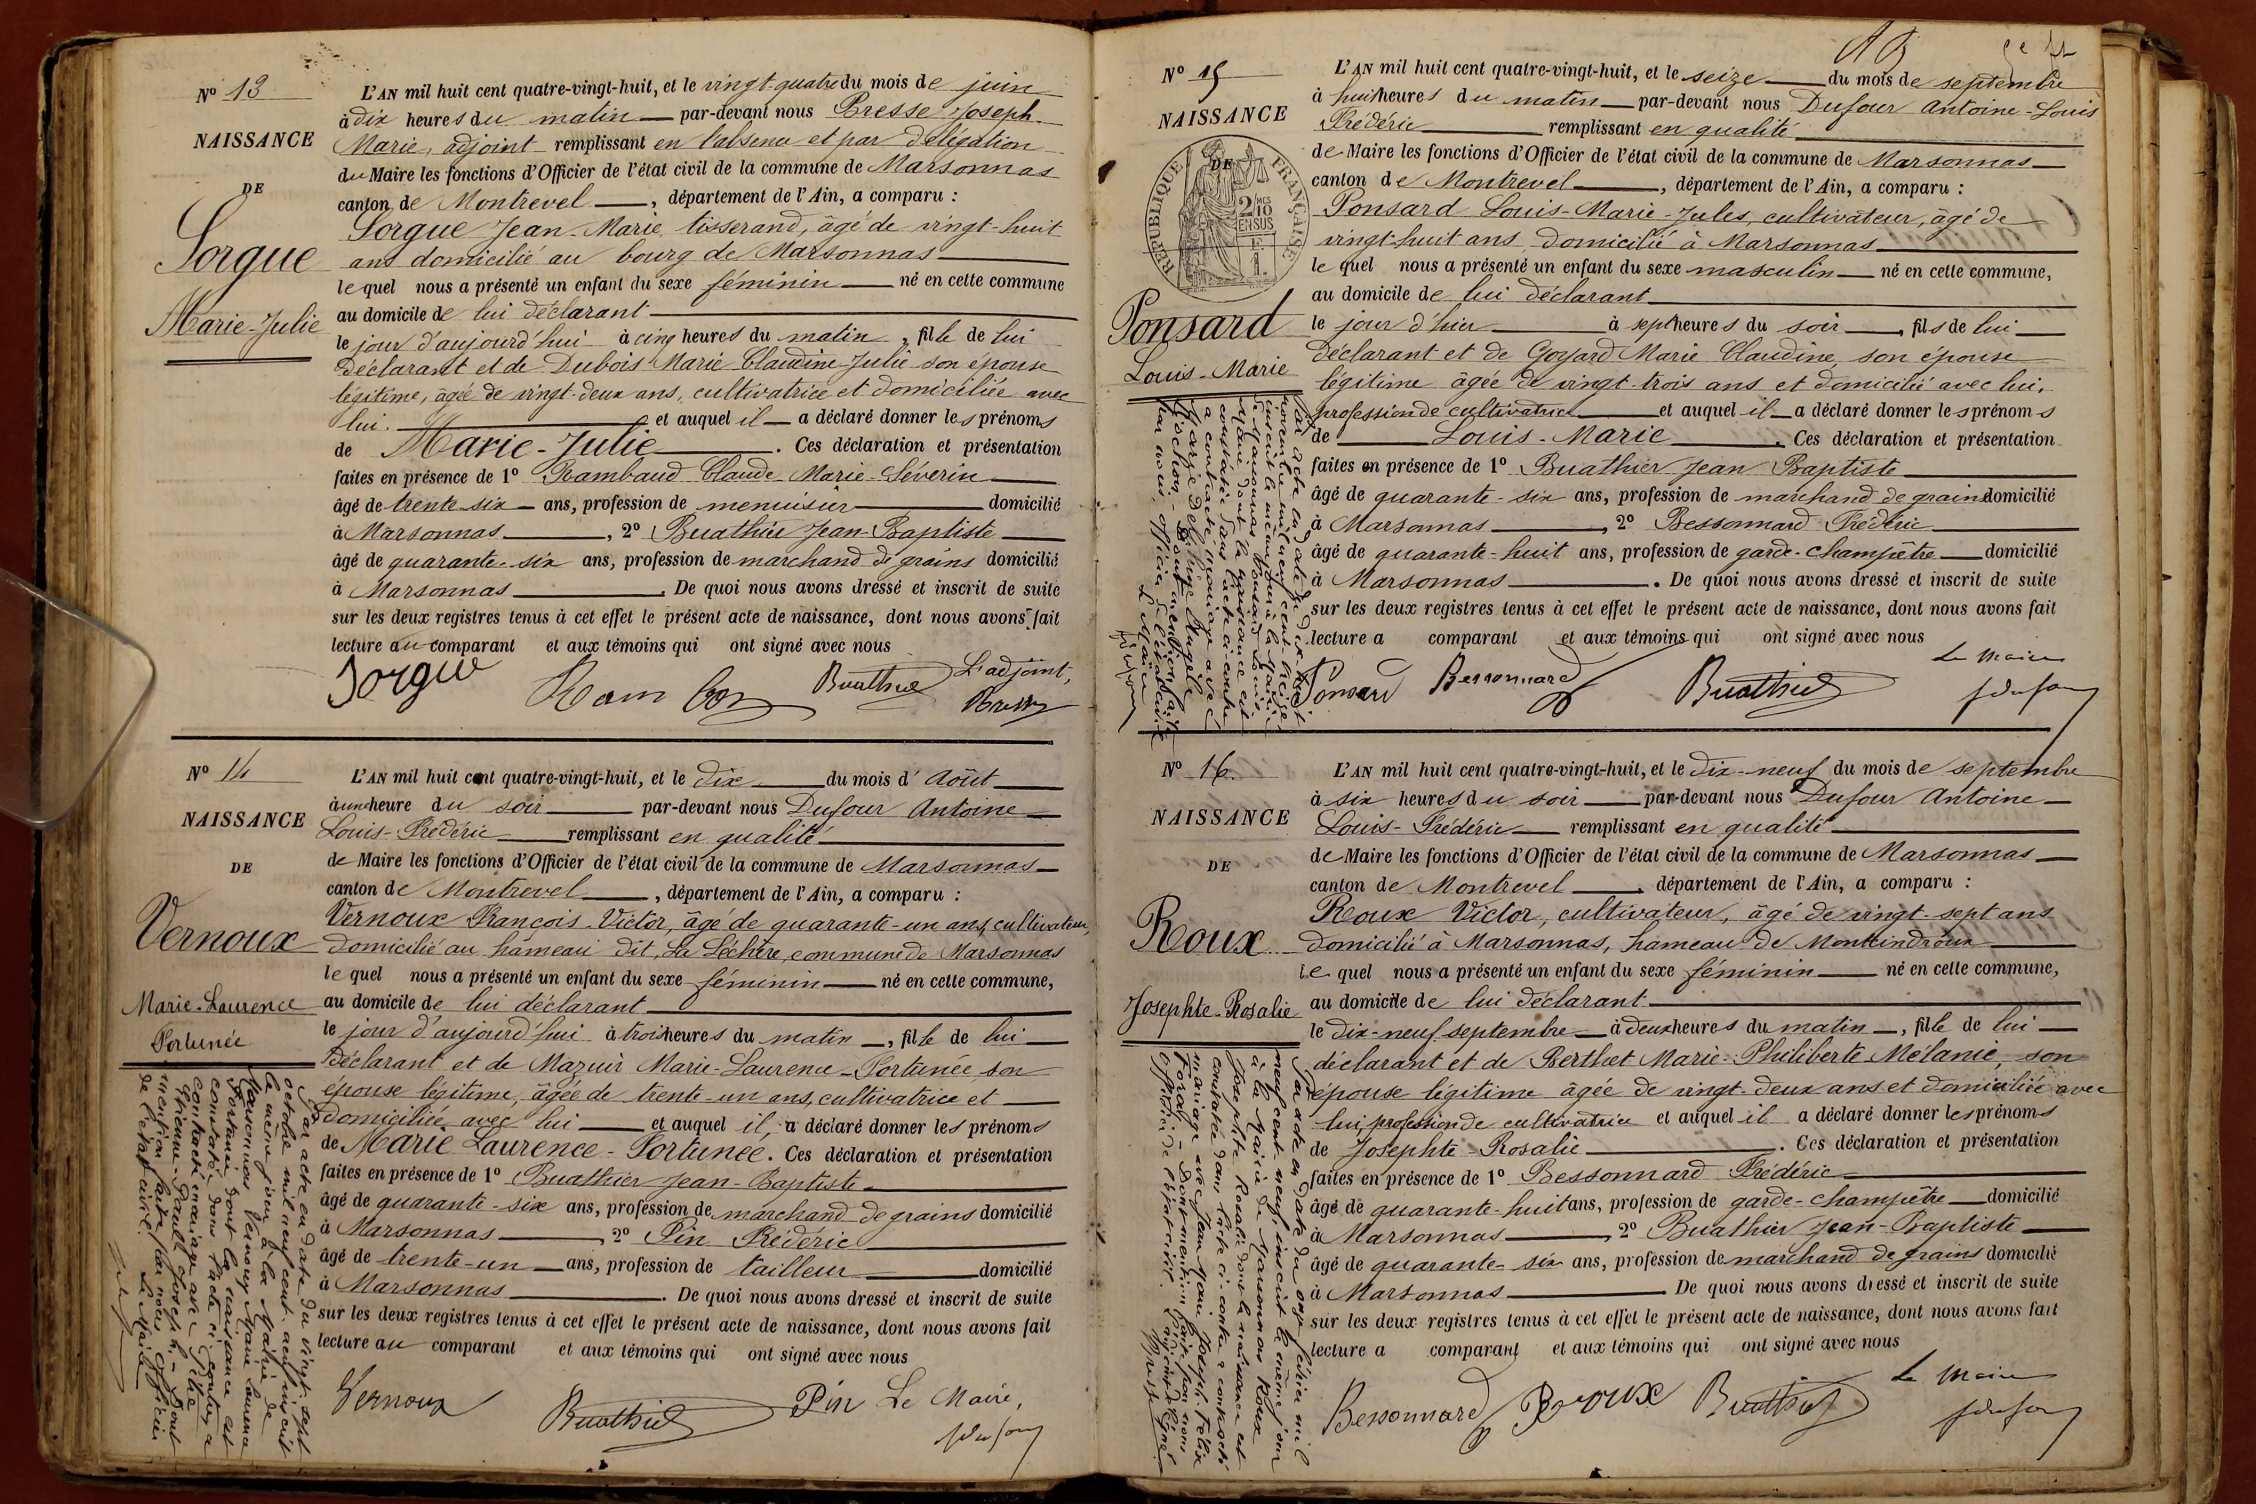 Nº 13
NAISSANCE
DE
Sorgue
Marie-Julie
L'AN mil huit cent quatre-vingt-huit, et le vingt-quatre du mois de juin
à dix heures du matin par-devant nous Bresse Joseph-
Marie, adjoint remplissant en l'absence et par délégation
du Maire les fonctions d'Officier de l'état civil de la commune de Marsonnas
canton de Montrevel, département de l'Ain, a comparu :
Sorgue Jean-Marie, tisserand, âgé de vingt-huit
ans domicilié au bourg de Marsonnas
le quel nous a présenté un enfant du sexe féminin né en cette commune
au domicile de lui déclarant
le jour d'aujourd'hui à cinq heures du matin, fille de lui
déclarant et de Dubois Marie Claudine Julie son épouse
légitime, âgée de vingt-deux ans, cultivatrice et domiciliée avec
lui. et auquel il a déclaré donner les prénoms
de Marie-Julie. Ces déclaration et présentation
faites en présence de 1º Rambaud Claude-Marie-Séverin
âgé de trente-six ans, profession de menuisier domicilié
à Marsonnas, 2º Buathier Jean-Baptiste
âgé de quarante-six ans, profession de marchand de grains domicilié
à Marsonnas. De quoi nous avons dressé et inscrit de suite
sur les deux registres tenus à cet effet le présent acte de naissance, dont nous avons fait
lecture au comparant et aux témoins qui ont signé avec nous
Sorgue Buathier L'adjoint,
Bresse
Nº 14
NAISSANCE
DE
Vernoux
Marie-Laurence
Fortunée
L'AN mil huit cent quatre-vingt-huit, et le dix du mois d'Août
à une heure du soir par-devant nous Dufour Antoine
Louis-Frédéric remplissant en qualité
de Maire les fonctions d'Officier de l'état civil de la commune de Marsonnas
canton de Montrevel, département de l'Ain, a comparu :
Vernoux François-Victor, âgé de quarante-un ans, cultivateur,
domicilié au hameau dit, La Léchère, commune de Marsonnas
le quel nous a présenté un enfant du sexe féminin né en cette commune,
au domicile de lui déclarant
le jour d'aujourd'hui à trois heures du matin, fille de lui
déclarant et de Mazuir Marie-Laurence-Fortunée, son
épouse légitime, âgée de trente-un ans, cultivatrice et
domiciliée avec lui et auquel il a déclaré donner les prénoms
de Marie Laurence-Fortunée. Ces déclaration et présentation
faites en présence de 1º Buathier Jean-Baptiste
âgé de quarante-six ans, profession de marchand de grains domicilié
à Marsonnas, 2º Pin Frédéric
âgé de trente-un ans, profession de tailleur domicilié
à Marsonnas. De quoi nous avons dressé et inscrit de suite
sur les deux registres tenus à cet effet le présent acte de naissance, dont nous avons fait
lecture au comparant et aux témoins qui ont signé avec nous
Vernoux Buathier Pin Le Maire,
fdufour
Par acte en date du vingt-sept
octobre mil neuf cent neuf inscrit
le même jour à la Mairie de
Marsonnas, Vernoux Marie Laurence
Fortunée dont la naissance est
constatée dans l'acte ci-contre a
contracté mariage avec
Etienne-Paul-Joseph.- Dont
mention faite par nous, officier
de l'état civil. Le Maire
Nº 15
NAISSANCE
DE
REPUBLIQUE FRANÇAISE
2/10
EN SUS
Ponsard
Louis-Marie
L'AN mil huit cent quatre-vingt-huit, et le seize du mois de septembre
à huit heures du matin par-devant nous Dufour Antoine-Louis
Frédéric remplissant en qualité
de Maire les fonctions d'Officier de l'état civil de la commune de Marsonnas
canton de Montrevel, département de l'Ain, a comparu :
Ponsard Louis-Marie-Jules, cultivateur, âgé de
vingt-huit ans, domicilié à Marsonnas
le quel nous a présenté un enfant du sexe masculin né en cette commune,
au domicile de lui déclarant
le jour d'hier à sept heures du soir, fils de lui
déclarant et de Goyard Marie Claudine, son épouse
légitime âgée de vingt-trois ans et domicilié avec lui,
profession de cultivatrice et auquel il a déclaré donner les prénoms
de Louis-Marie. Ces déclaration et présentation
faites en présence de 1º Buathier Jean Baptiste
âgé de quarante-six ans, profession de marchand de grains domicilié
à Marsonnas, 2º Bessonnard Frédéric
âgé de quarante-huit ans, profession de garde-champêtre domicilié
à Marsonnas. De quoi nous avons dressé et inscrit de suite
sur les deux registres tenus à cet effet le présent acte de naissance, dont nous avons fait
lecture a comparant et aux témoins qui ont signé avec nous
Ponsard Bessonnard Buathier Le Maire
fdufour
Nº 16
NAISSANCE
DE
Roux
Josephte-Rosalie
L'AN mil huit cent quatre-vingt-huit, et le dix-neuf du mois de septembre
à six heures du soir par-devant nous Dufour Antoine
Louis-Frédéric remplissant en qualité
de Maire les fonctions d'Officier de l'état civil de la commune de Marsonnas
canton de Montrevel, département de l'Ain, a comparu :
Roux Victor, cultivateur, âgé de vingt-sept ans
domicilié à Marsonnas, hameau de Montcindroux
le quel nous a présenté un enfant du sexe féminin né en cette commune,
au domicile de lui déclarant
le dix-neuf septembre à deux heures du matin, fille de lui
déclarant et de Berthet Marie-Philiberte Mélanie, son
épouse légitime âgée de vingt-deux ans et domiciliée avec
lui, profession de cultivatrice et auquel il a déclaré donner les prénoms
de Josephte-Rosalie. Ces déclaration et présentation
faites en présence de 1º Bessonnard Frédéric
âgé de quarante-huit ans, profession de garde-champêtre domicilié
à Marsonnas, 2º Buathier Jean-Baptiste
âgé de quarante-six ans, profession de marchand de grains domicilié
à Marsonnas De quoi nous avons dressé et inscrit de suite
sur les deux registres tenus à cet effet le présent acte de naissance, dont nous avons fait
lecture a comparant et aux témoins qui ont signé avec nous
Bessonnard Roux Buathier Le Maire
fdufour
Par acte en date du onze février mil
neuf cent neuf, inscrit le même jour
à la Mairie de Marsonnas Roux
Josephte Rosalie dont la naissance est
constatée dans l'acte ci-contre a contracté
mariage avec Jean-Marie Joseph Félix
Foray - Dont mention faite par nous
Officier de l'état civil.